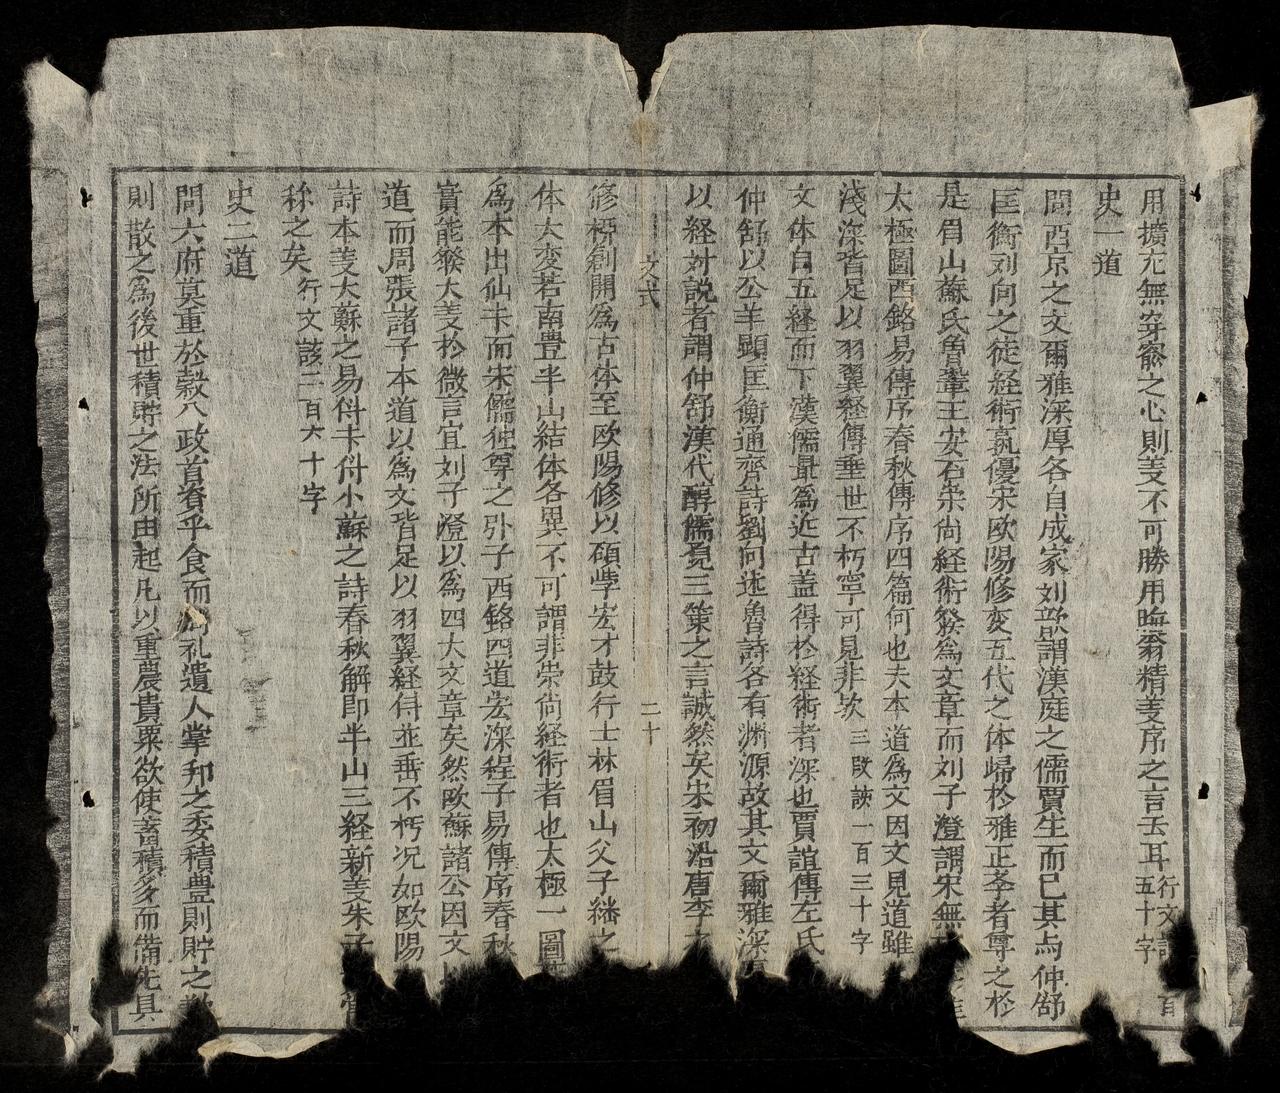 用擴充無穿窬之心則㐅不可勝用晦翁精㐅序之言云耳行文該
百五十字
史一道
問西京之文爾雅深厚各自成家刘歆謂漢庭之儒賈生而已其与仲舒
匡衡刘向之徒経術孰優宋欧陽修变五代之体歸於雅正李者尊之於
是眉山蘇氏魯鞏王安石崇尚経術發為文章而刘子澄謂宋無
太極圖西銘易傳序春秋傳序四篇何也夫本道為文因文見道雖
淺深皆足以羽翼経傳垂世不朽寧可見非欤三叚該一百三十字
文体自五経而下漢儒最為近古盖得於経術者深也賈誼傳左氏
仲舒以公羊顯匡衡通齊詩劉向述魯詩各有渊源故其文爾雅深
以経対説者謂仲舒漢代醇儒覔三策之言誠然矣宋初沿唐李
文式
二十
修極創開為古体至欧陽修以碩学宏才鼓行士林眉山父子繙之
体大变若南豊半山結体各異不可謂非崇尚経術者也太極一圖
為本出仙卡而宋儒独尊之引子西銘四道宏深程子易傳序春秋
實能發大㐅於微言宜刘子澄以為四大文章矣然欧蘇諸公因文
道而周張諸子本道以為文皆足以羽翼経傳並垂不朽况如欧陽
詩本㐅大蘇之易傳卡傳小蘇之詩春秋解即半山三経新㐅朱子
称之矣行文該二百六十字
史二道
問六府莫重於穀八政首資乎食而周礼遺人掌邦之委積豊則貯之
則散之為後世積貯之法所由起凡以重農貴粟欲使畜積多而備先具